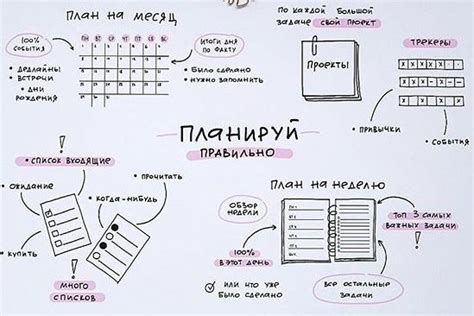 План на месяц
100%
события
• дедлайны
• встречи
• дни
рождения
ПН ВТ СР ЧТ ПТ СБ ВС
итоги дня
по факту
• было сделано
• нужно запомнить
по каждой большой
задаче свой проект
Проекты!
трекеры
• привычки
• события
Планируй
правильно
!
• список входящие
• ожидание
• прочитать
• когда-нибудь
• купить
!
много
списков
План на неделю
обзор
недели
100%
в этот день
ПН
ВТ
СР
ЧТ
ПТ
топ 3 самых
важных задачи
все остальные
задачи
или что уже
было сделано